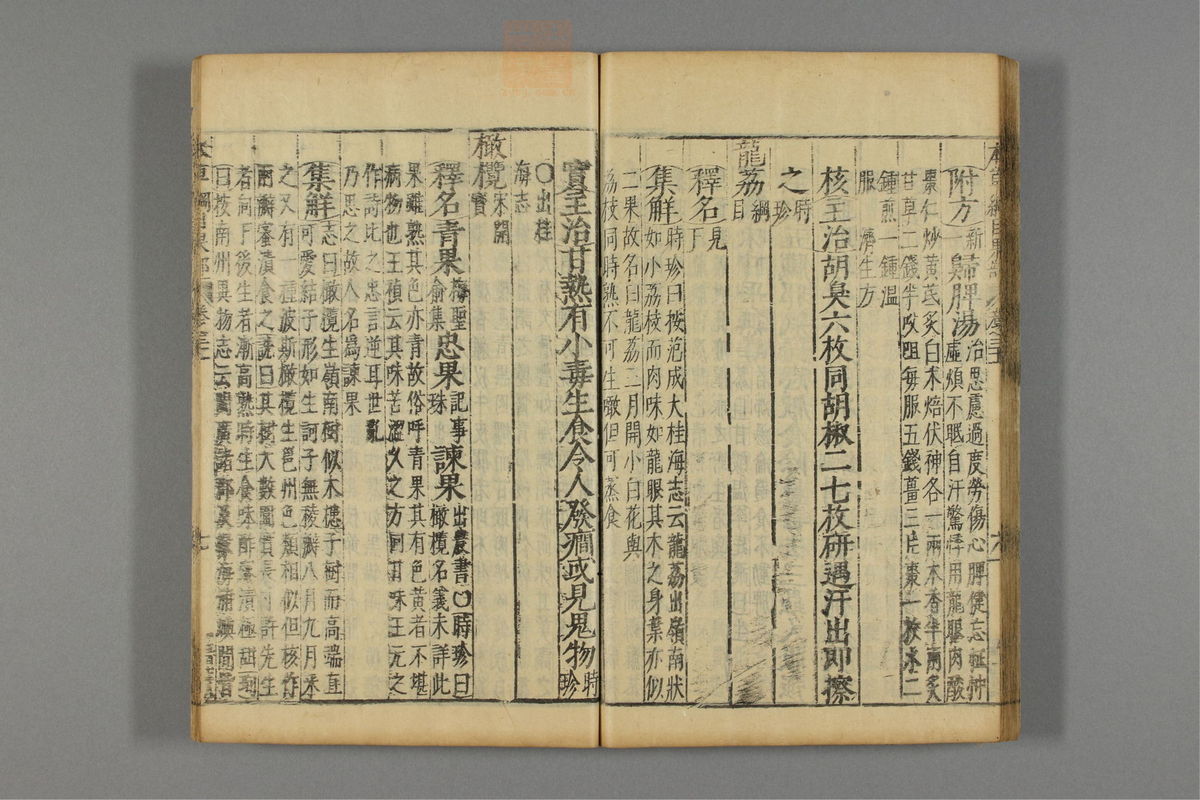 附方新一歸脾湯治思慮過度勞傷心脾健忘怔忡
虛煩不眠自汗驚悸用龍眼肉酸
棗仁炒黃芪炙白朮焙伏神各一兩木香半兩炙
甘草二錢半㕮咀每服五錢薑三片棗一枚水二
鍾煎一鍾溫
服濟生方
核主治胡臭六枚同胡椒二七枚研遇汗出即擦
之時珍
龍荔綱目
釋名見下
集解時珍曰按范成大桂海志云龍荔出嶺南狀
如小荔枝而肉味如龍眼其木之身葉亦似
二果故名曰龍荔二月開小白花與
荔枝同時熟不可生噉但可蒸食
實主治甘熱有小毒生食令人發癇或見鬼物時珍
○出桂
海志
橄欖宋開寶
釋名青果梅聖俞集忠果記事珠諫果出農書○時珍曰
橄欖名義未詳此
果雖熟其色亦青故俗呼青果其有色黃者不堪
病物也王禎云其味苦澀久之方回甘味王元之
作詩比之忠言逆耳世亂
乃思之故人名為諫果
集解志曰橄欖生嶺南樹似木槵子樹而高端直
可愛結子形如生訶子無稜瓣八月九月采
之又有一種波斯橄欖生邕州色類相似但核作
兩瓣蜜漬食之詵曰其樹大數圍實長寸許先生
者向下後生者漸高熟時生食味酢蜜漬極甜珣
曰按南州異物志云閩廣諸郡及緣海浦嶼間皆